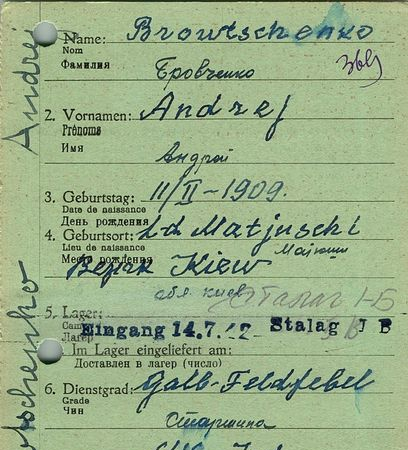 1. Name: Browtschenko
Nom
Фамилия
Бровченко
2. Vornamen: Andrej
Prénoms
Имя
Андрей
3. Geburtstag: 11/II-1909.
Date de naissance
День рождения
4. Geburtsort: Ld Matjuschi
Lieu de naissance
Место рождения
Bezirk Kiew
обл киев
Сталаг I-Б
5. Lager:
Лагерь
Eingang 14.7.42 Stalag I B
Im Lager eingeliefert am:
Доставлен в лагерь (число)
6. Dienstgrad: Galb-Feldfebel
Grade
Чин
Старшина
Andrej